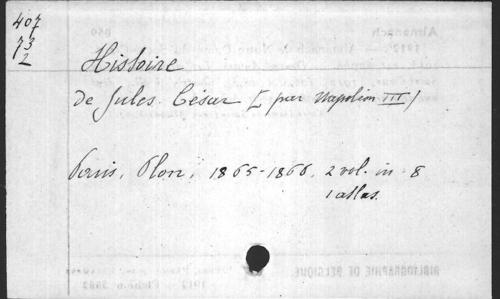 407
73
2
Histoire
de Jules César [par Napoléon III]
Paris, Plon, 1865-1866, 2 vol. in-8
1 atlas.
BIBLIOGRAPHIE DE BELGIQUE